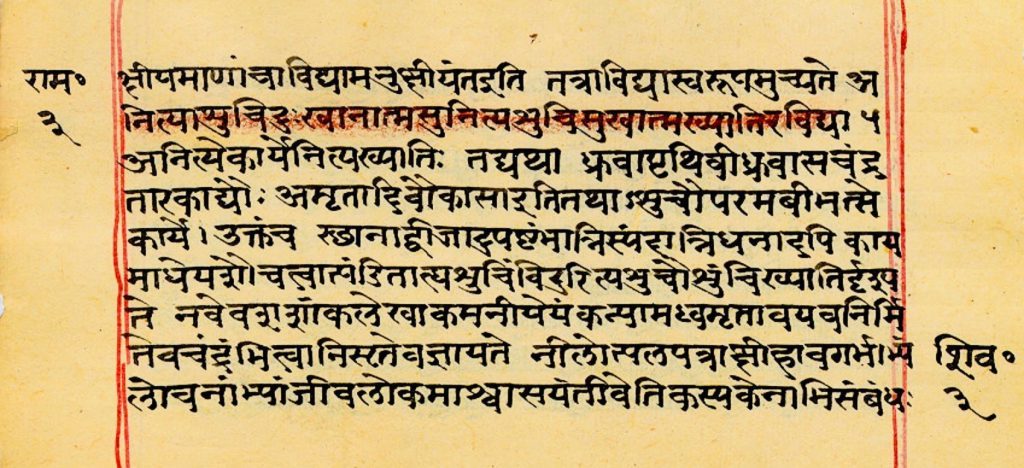 राम॰
३
क्षीयमाणां चाविद्यामनुक्षीयंत इति तत्राविद्यास्वरूपमुच्यते अ
नित्याशुचिदुःखानात्मसु नित्यशुचिसुखात्मख्यातिरविद्या ५
अनित्ये कार्ये नित्यख्यातिः तद्यथा ध्रुवा पृथिवी ध्रुवा सचंद्र
तारका द्यौः अमृता दिवौकसा इति तथाऽशुचौ परमबीभत्से
काये। उक्तं च स्थानाद्बीजादुपष्टंभान्निस्पंदान्निधनादपि काय
माधेयशौचत्वात्पंडिता त्यशुचिं विदुरित्यशुचौ शुचिख्यातिर्दृश्य
ते नवेव शशांकलेखा कमनीयेयं कन्या मध्वमृतावयवनिर्मि
तेव चंद्रं भित्वा निसृतेव ज्ञायते नीलोत्पलपत्राक्षी हावगर्भाभ्यां
लोचनाभ्यां जीवलोकमाश्वासयंतीवेति कस्य केनाभिसंबंधः
शिव॰
३